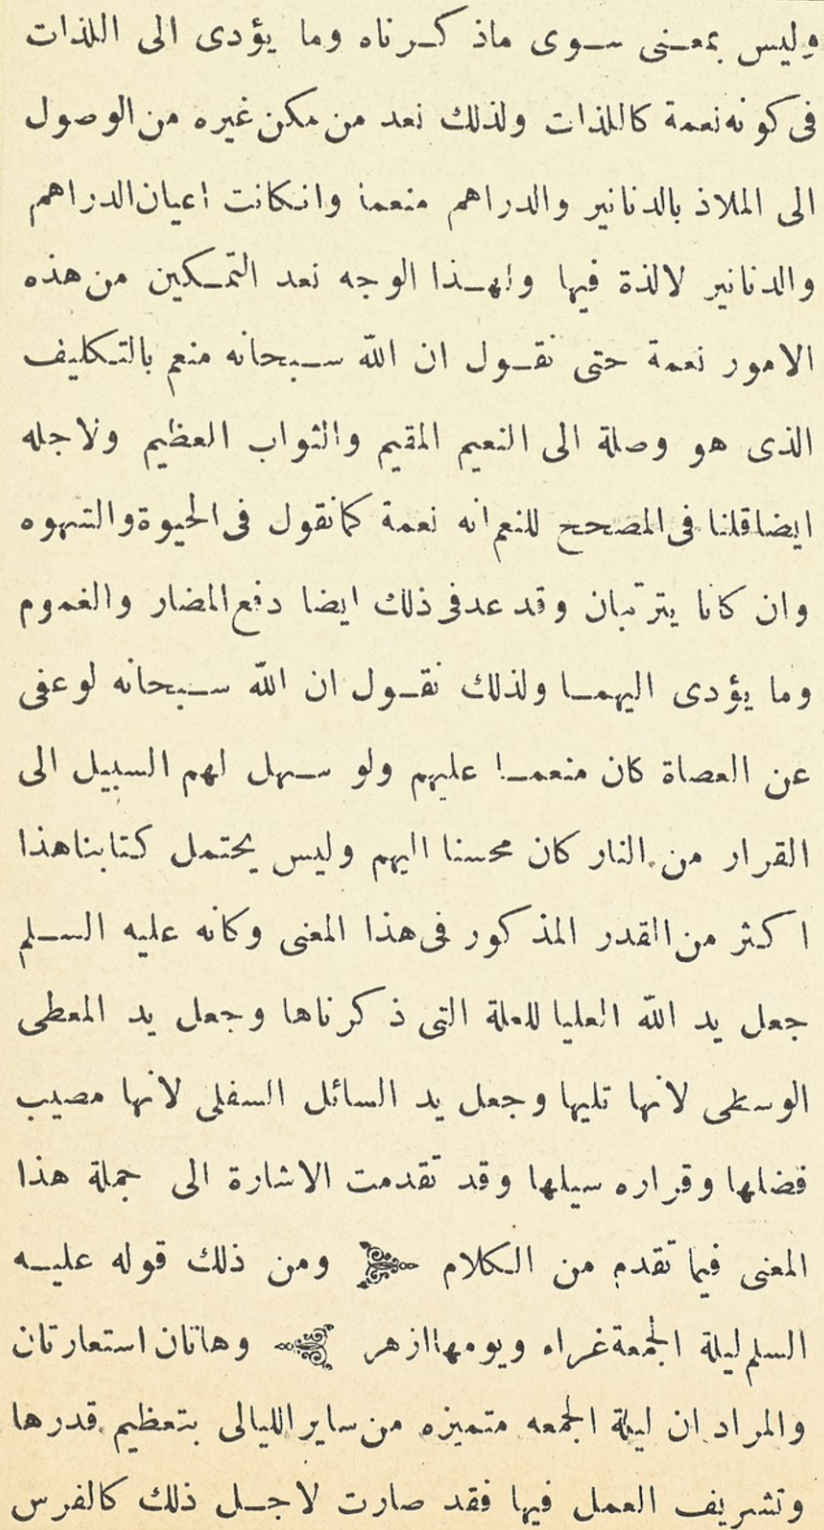 وليس بمعنى سوى ماذكرناه وما يؤدى الى اللذات
فى كونه نعمة كاللذات ولذلك نعد من مكن غيره من الوصول
الى الملاذ بالدنانير والدراهم منعما وانكانت اعيان الدراهم
والدنانير لالذة فيها ولهذا الوجه نعد التمكين من هذه
الامور نعمة حتى نقول ان الله سبحانه منعم بالتكليف
الذى هو وصلة الى النعيم المقيم والثواب العظيم ولاجله
ايضا قلنا فى المصحح للنعم انه نعمة كما نقول فى الحيوة والشهوه
وان كانا يترتبان وقد عد فى ذلك ايضا دفع المضار والغموم
وما يؤدى اليهما ولذلك نقول ان الله سبحانه لو عفى
عن العصاة كان منعما عليهم ولو سهل لهم السبيل الى
القرار من النار كان محسنا اليهم وليس يحتمل كتابنا هذا
اكثر من القدر المذكور فى هذا المعنى وكانه عليه السلم
جعل يد الله العليا للعلة التى ذكرناها وجعل يد المعطى
الوسطى لانها تليها وجعل يد السائل السفلى لانها مصيب
فضلها وقراره سيلها وقد تقدمت الاشارة الى جملة هذا
المعنى فيما تقدم من الكلام ومن ذلك قوله عليه
السلم ليلة الجمعة غراء ويومها ازهر وهاتان استعارتان
والمراد ان ليلة الجمعه متميزه من ساير الليالى بتعظيم قدرها
وتشريف العمل فيها فقد صارت لاجل ذلك كالفرس